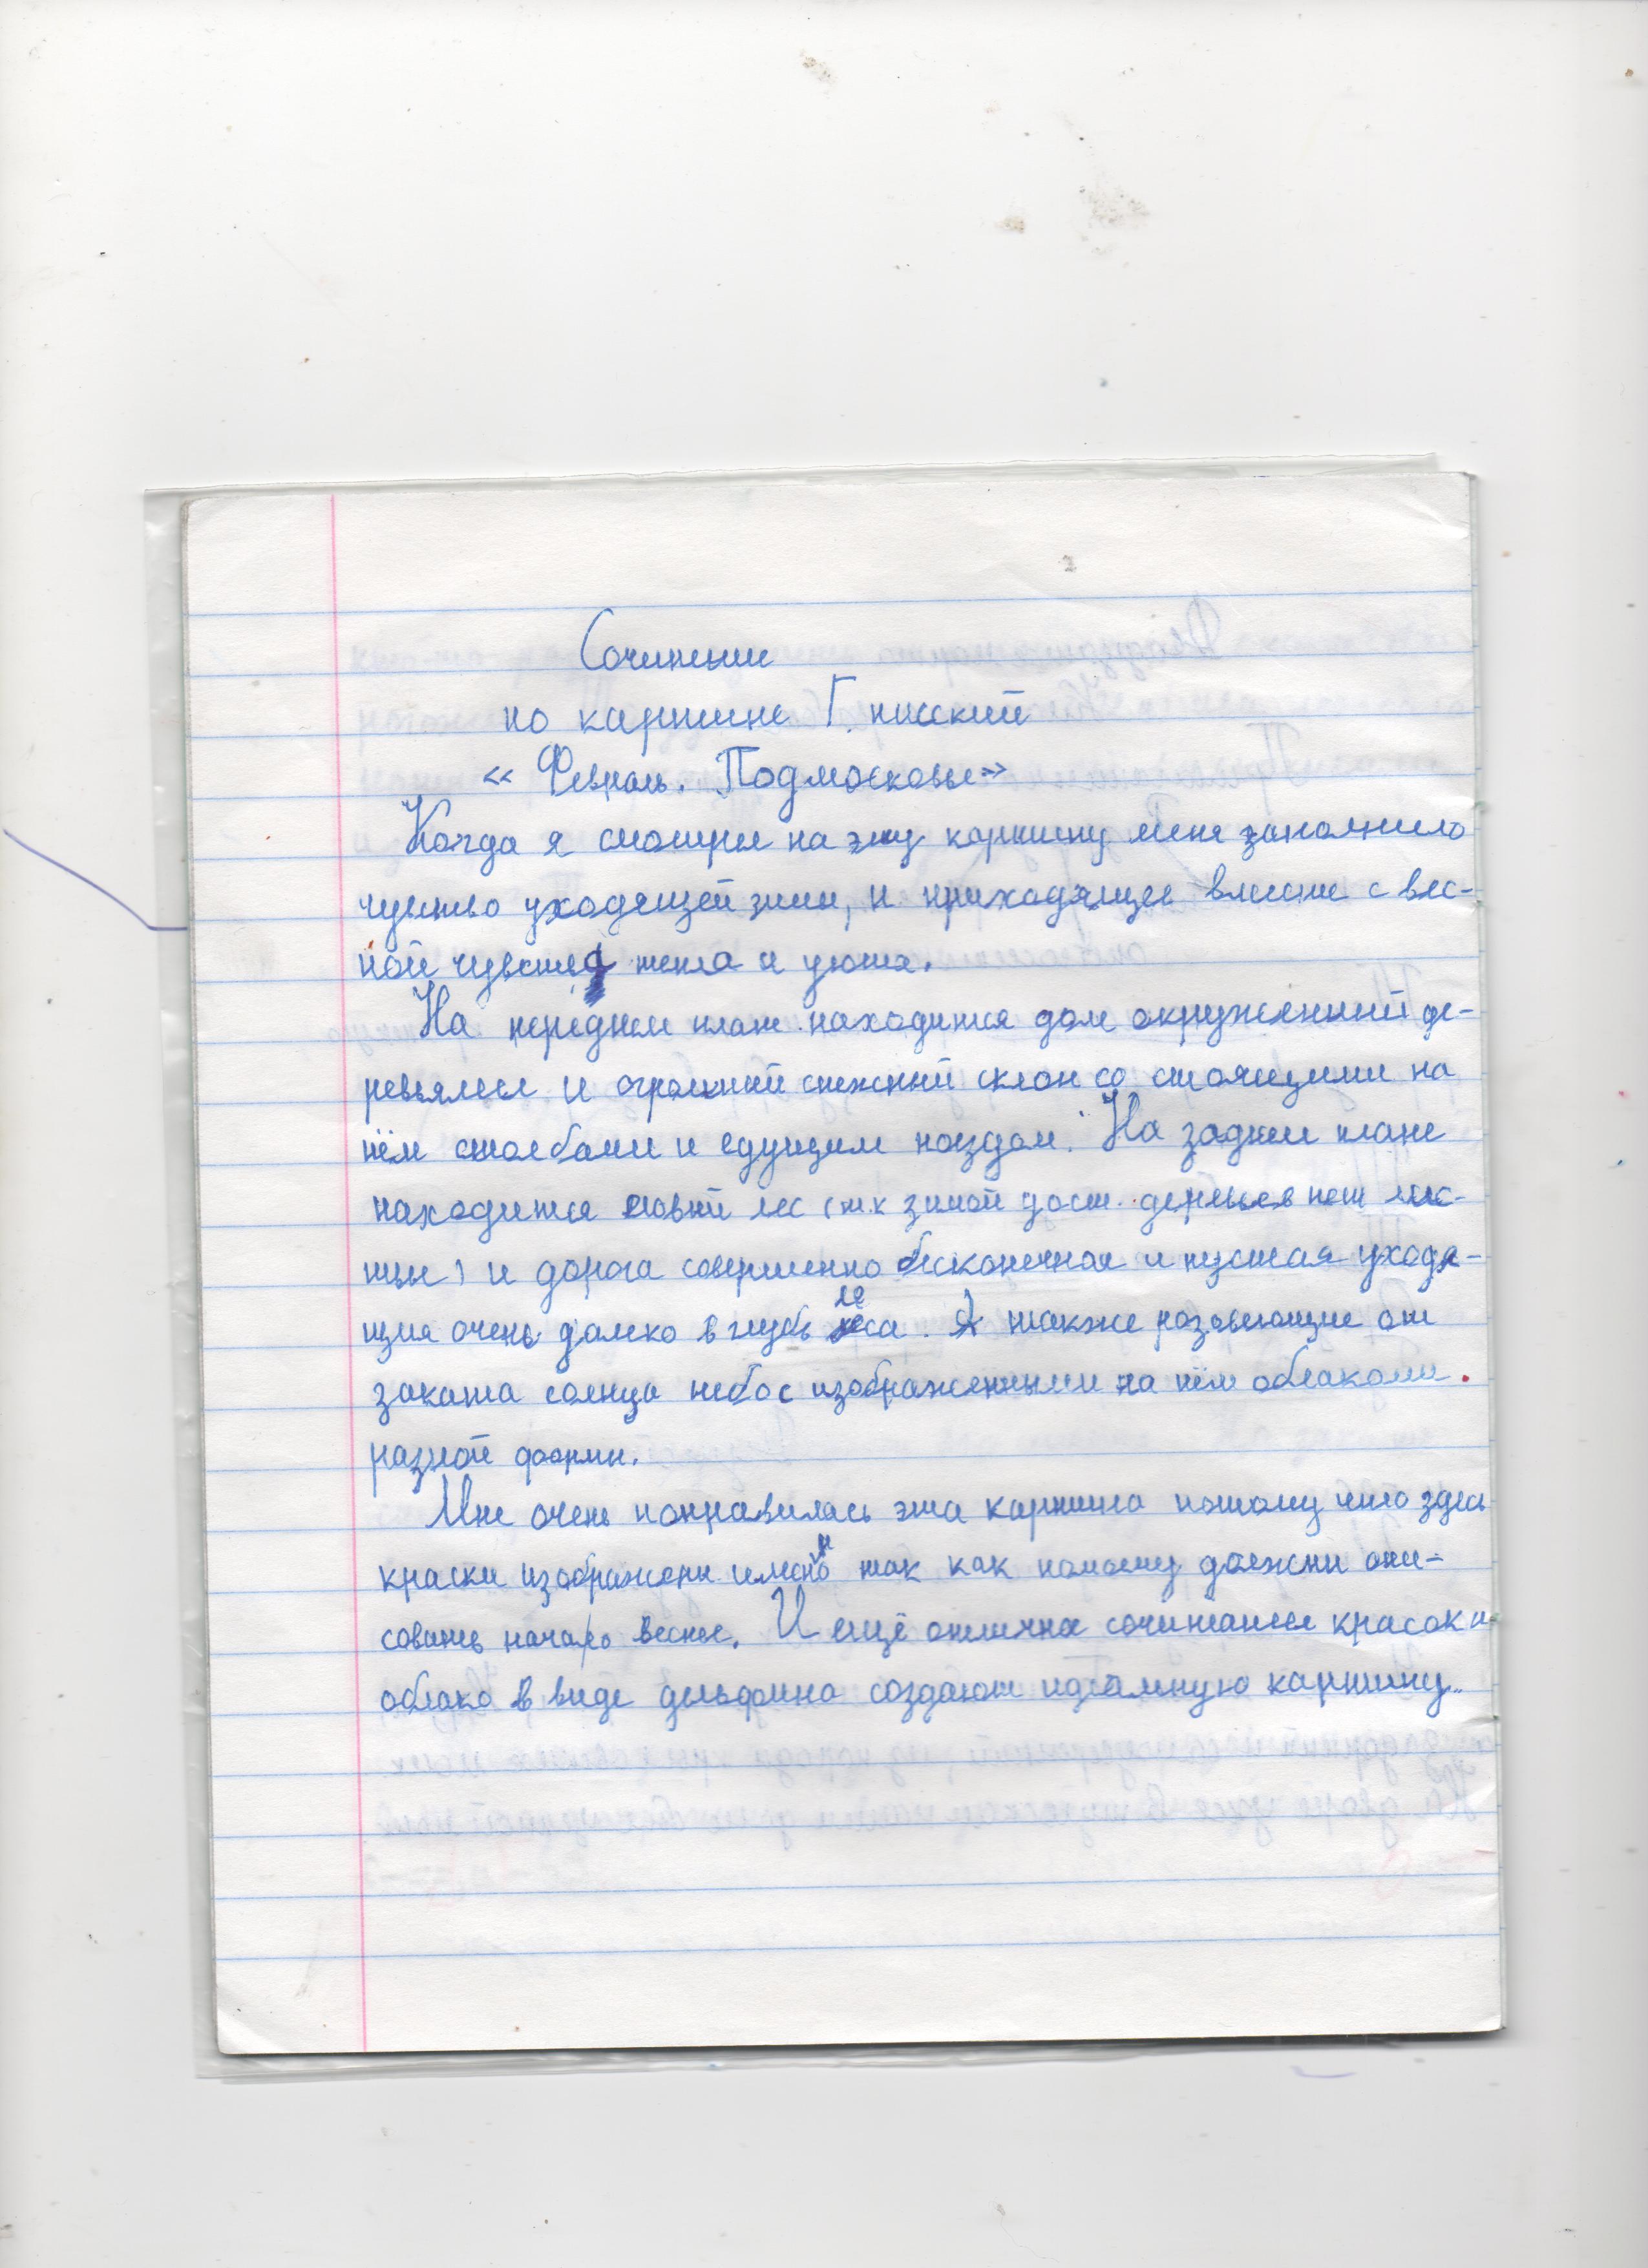 Сочинение
по картине Г. нисский
« Февраль. Подмосковье»
Когда я смотрел на эту картину меня заполнило
чувство уходящей зимы, и приходящее вместе с вес-
ной чувства тепла и уюта.
На переднем плане находится дом окруженный де-
ревьями и огромный снежный склон со стоящими на
нём столбами и едущим поездом. На заднем плане
находится еловый лес (т.к зимой у ост. деревьев нет лис-
тьы) и дорога совершенно бесконечная и пустая уходя-
щия очень далеко в глубь леса. А также розовеющие от
заката солнца небо с изображенными на нём облаками
разной формы.
Мне очень понравилась эта картина потому что здесь
краски изображены именно так как помоему должны опи-
совать начало весны. И ещё отличное сочитание красок и
облако в виде дельфина создают идеальную картину.